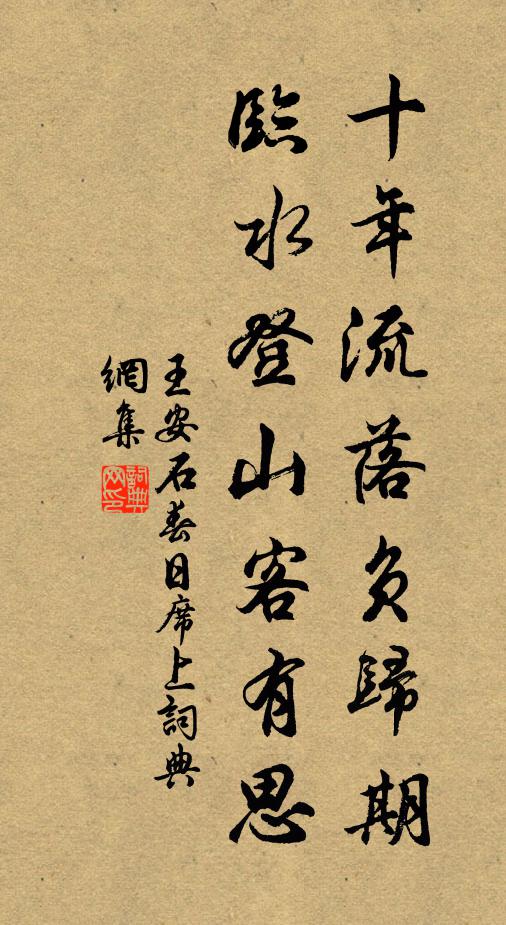 十年流落負歸期
臨水登山客有思
王安石春日席上詞典
網集
詞典網印